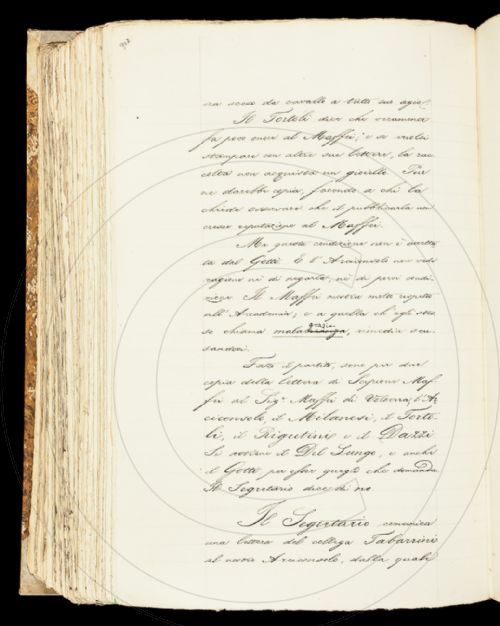 902
ra sceso da cavallo a tutto suo agio.
Il Tortoli dice che veramente
fa poco onore al Maffei; e se vuolsi
stampare con altre sue lettere, la rac
colta non acquista un gioiello. Pur
ne darebbe copia, facendo a chi la
chiede osservare che il pubblicarla non
cresce reputazione al Maffei.
Ma questa condizione non è accetta
ta dal Gotti. E l'Arciconsolo non vede
ragione nè di negarla, nè di porvi condi
zione. Il Maffei mostra molto rispetto
all'Accademia; e a quella ch'egli stes
so chiama mala grazia, rimedia scu
sandosi.
Fatto il partito, sono per dar
copia della lettera di Scipione Maf
fei al Sig.r Maffei di Volterra, l'Ar
ciconsolo, il Milanesi, il Torto
li, il Rigutini e il Dazzi.
Si astiene il Del Lungo, e anche
il Gotti per esser quegli che domanda.
Il Segretario dice di no.
Il Segretario comunica
una lettera del collega Tabarrini
al nostro Arciconsolo, dalla quale